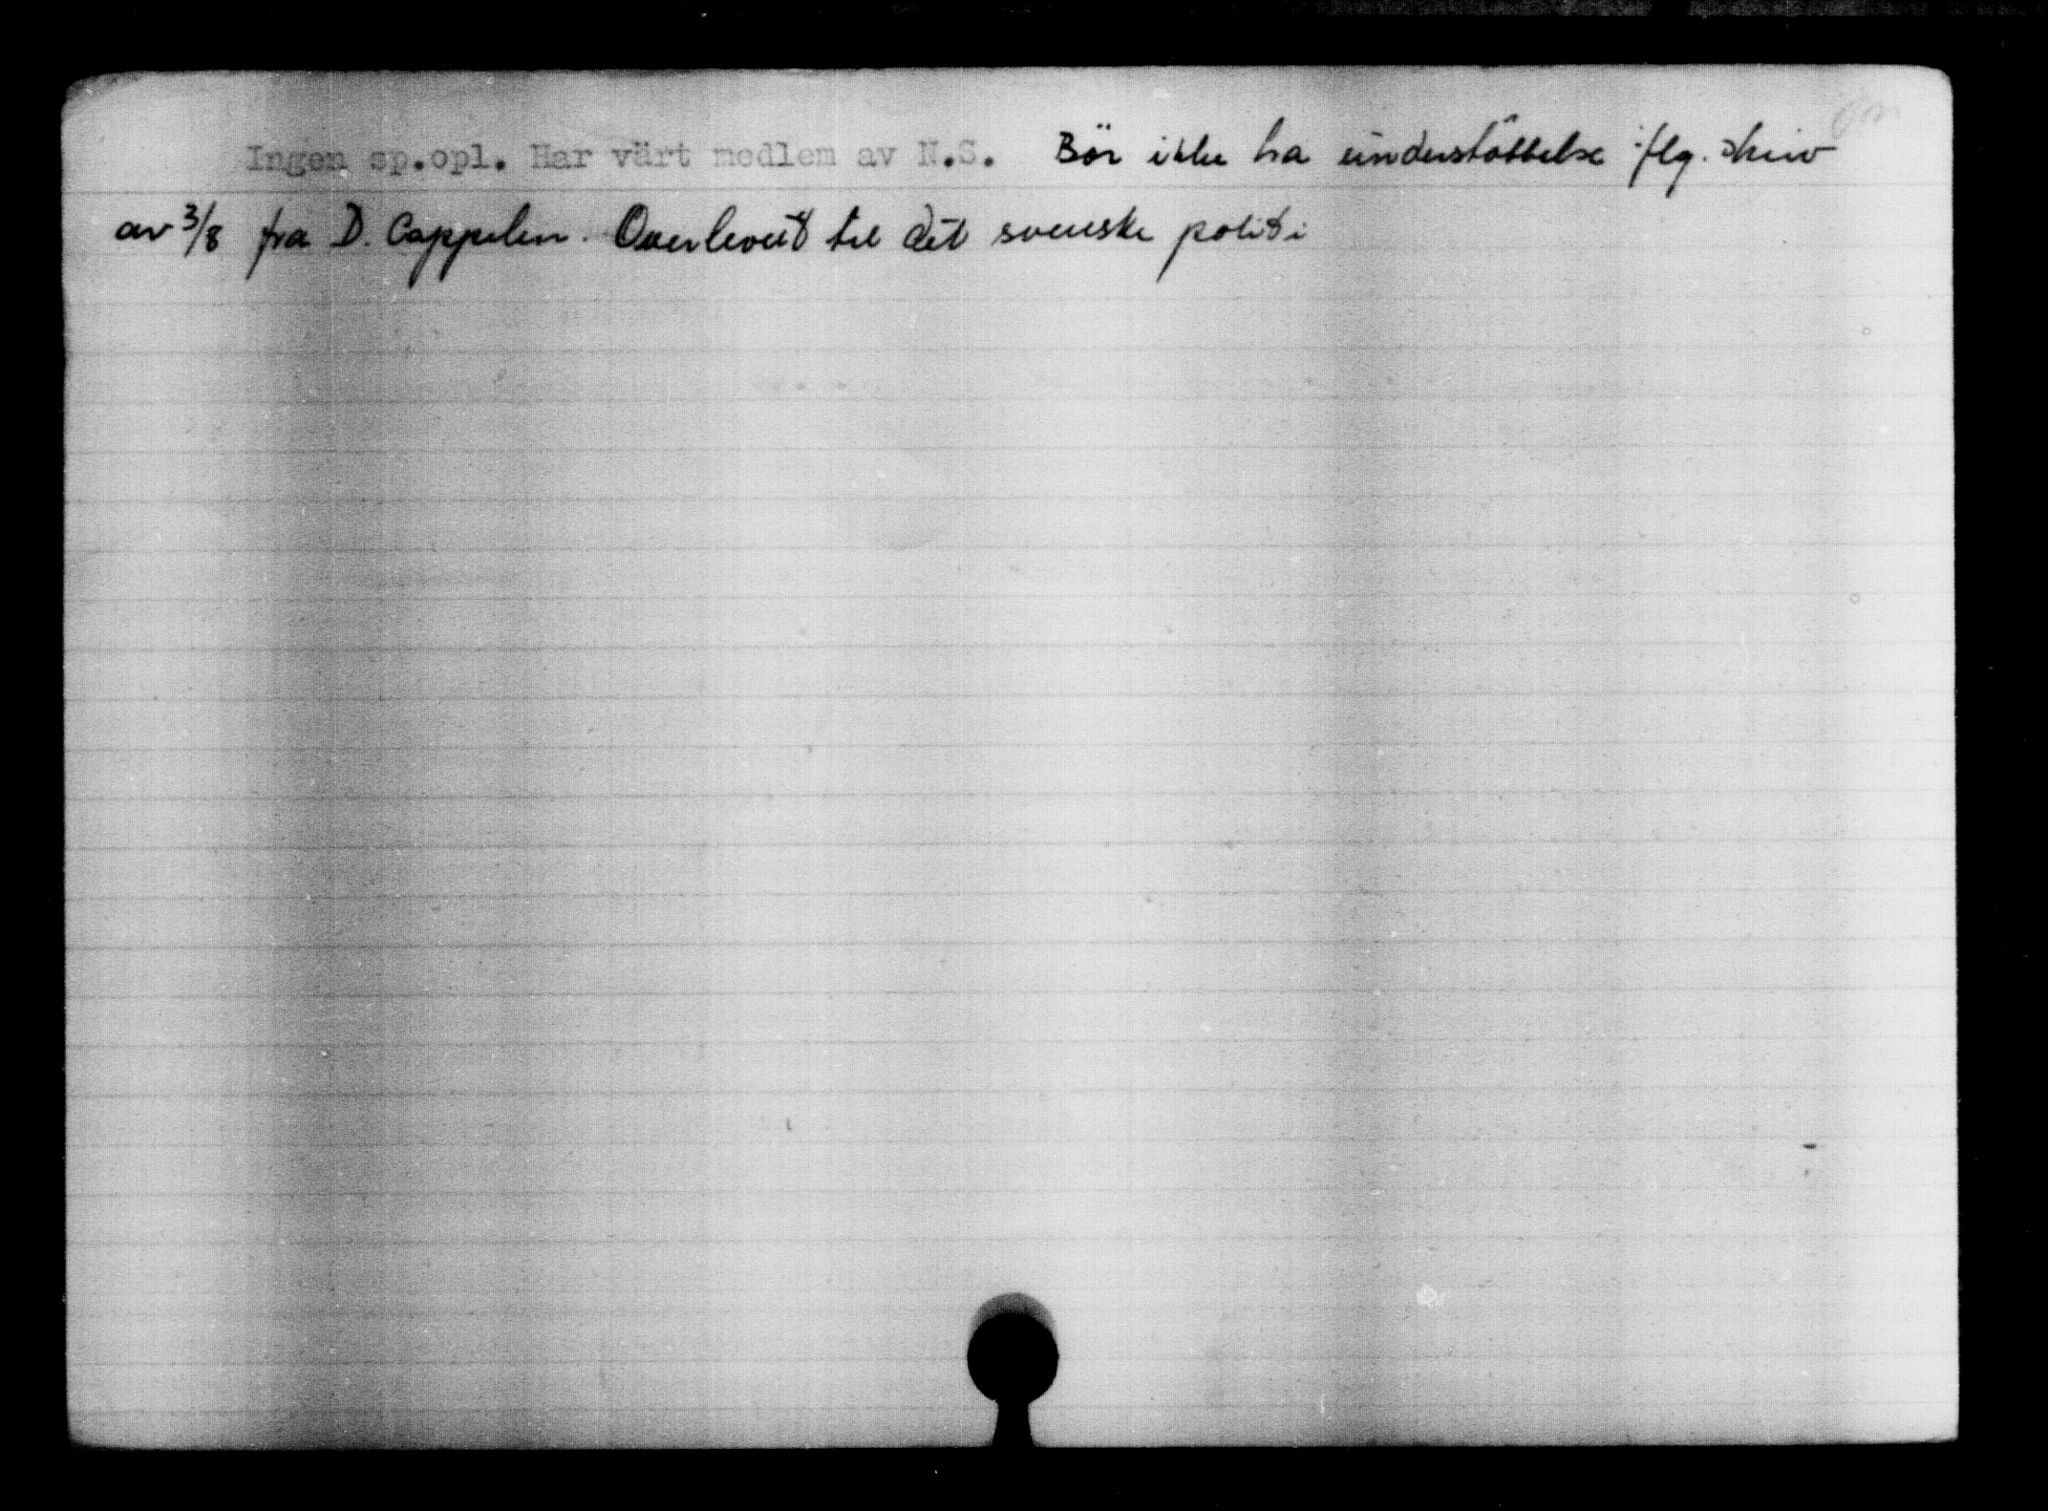 Ingen sp.opl. Har värt medlem av N.S. Bör ikke ha understöttelse iflg. skriv
av 3/8 fra D. Cappelen. Overlevert til det svenske politi